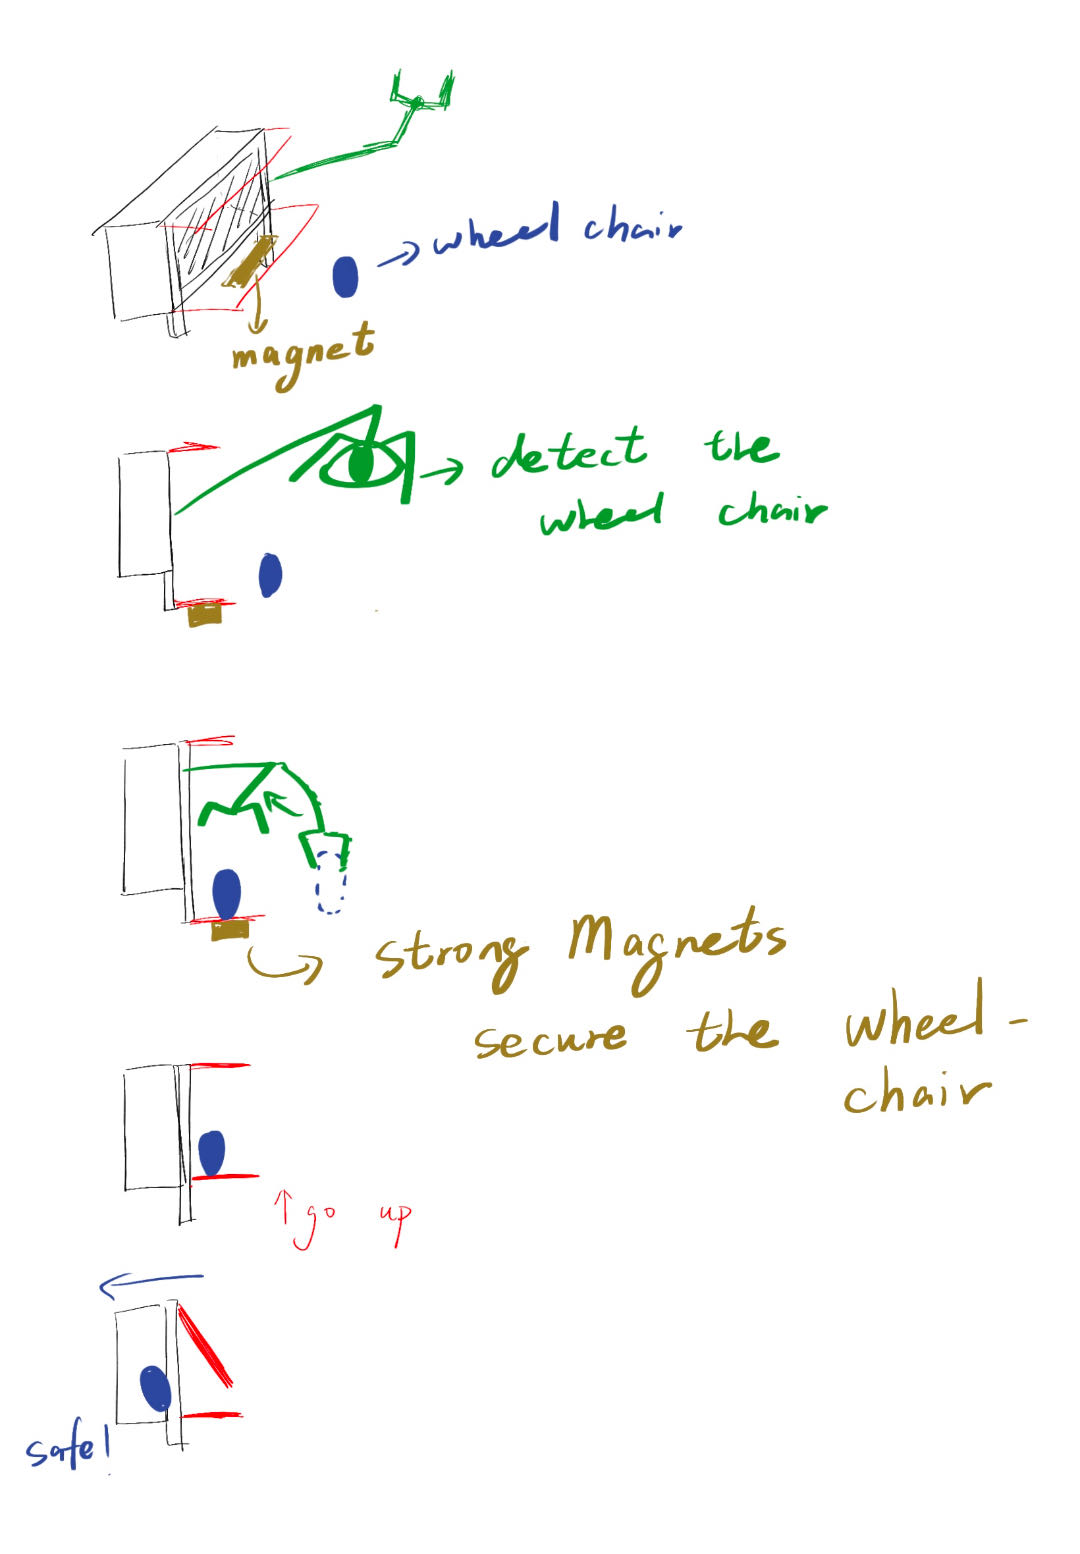 wheel chair
magnet
detect the
wheel chair
strong Magnets
secure the wheel-
chair
go up
safe!